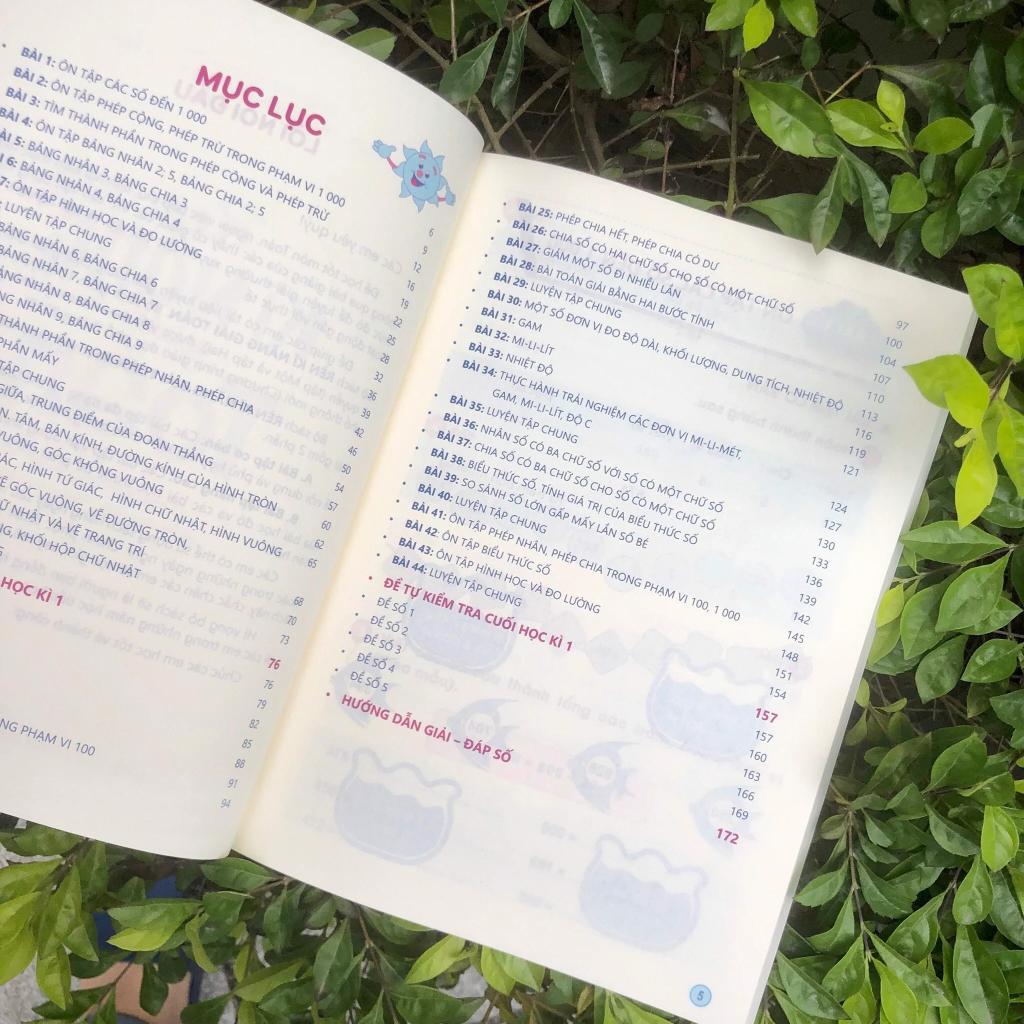 MỤC LỤC
BÀI 1: ÔN TẬP CÁC SỐ ĐẾN 1 000
BÀI 2: ÔN TẬP PHÉP CỘNG, PHÉP TRỪ TRONG PHẠM VI 1 000
BÀI 3: TÌM THÀNH PHẦN TRONG PHÉP CỘNG VÀ PHÉP TRỪ
BÀI 4: ÔN TẬP BẢNG NHÂN 2; 5, BẢNG CHIA 2; 5
5: BẢNG NHÂN 3, BẢNG CHIA 3
6: BẢNG NHÂN 4, BẢNG CHIA 4
7: ÔN TẬP HÌNH HỌC VÀ ĐO LƯỜNG
LUYỆN TẬP CHUNG
BẢNG NHÂN 6, BẢNG CHIA 6
BẢNG NHÂN 7, BẢNG CHIA 7
NHÂN 8, BẢNG CHIA 8
NHÂN 9, BẢNG CHIA 9
THÀNH PHẦN TRONG PHÉP NHÂN, PHÉP CHIA
PHẦN MẤY
TẬP CHUNG
GIỮA, TRUNG ĐIỂM CỦA ĐOẠN THẲNG
TÂM, BÁN KÍNH, ĐƯỜNG KÍNH CỦA HÌNH TRÒN
VUÔNG, GÓC KHÔNG VUÔNG
HÌNH TỨ GIÁC, HÌNH CHỮ NHẬT, HÌNH VUÔNG
GÓC VUÔNG, VẼ ĐƯỜNG TRÒN,
NHẬT VÀ VẼ TRANG TRÍ
KHỐI HỘP CHỮ NHẬT
HỌC KÌ 1
PHẠM VI 100
6
9
12
16
19
22
25
28
32
36
39
42
46
50
54
57
60
62
65
68
70
73
76
76
79
82
85
88
91
94
BÀI 25: PHÉP CHIA HẾT, PHÉP CHIA CÓ DƯ 97
BÀI 26: CHIA SỐ CÓ HAI CHỮ SỐ CHO SỐ CÓ MỘT CHỮ SỐ 100
BÀI 27: GIẢM MỘT SỐ ĐI NHIỀU LẦN 104
BÀI 28: BÀI TOÁN GIẢI BẰNG HAI BƯỚC TÍNH 107
BÀI 29: LUYỆN TẬP CHUNG 110
BÀI 30: MỘT SỐ ĐƠN VỊ ĐO ĐỘ DÀI, KHỐI LƯỢNG, DUNG TÍCH, NHIỆT ĐỘ 113
BÀI 31: GAM 116
BÀI 32: MI-LI-LÍT 119
BÀI 33: NHIỆT ĐỘ 121
BÀI 34: THỰC HÀNH TRẢI NGHIỆM CÁC ĐƠN VỊ MI-LI-MÉT,
GAM, MI-LI-LÍT, ĐỘ C 124
BÀI 35: LUYỆN TẬP CHUNG 127
BÀI 36: NHÂN SỐ CÓ BA CHỮ SỐ VỚI SỐ CÓ MỘT CHỮ SỐ 130
BÀI 37: CHIA SỐ CÓ BA CHỮ SỐ CHO SỐ CÓ MỘT CHỮ SỐ 133
BÀI 38: BIỂU THỨC SỐ, TÍNH GIÁ TRỊ CỦA BIỂU THỨC SỐ 136
BÀI 39: SO SÁNH SỐ LỚN GẤP MẤY LẦN SỐ BÉ 139
BÀI 40: LUYỆN TẬP CHUNG 142
BÀI 41: ÔN TẬP PHÉP NHÂN, PHÉP CHIA TRONG PHẠM VI 100, 1 000 145
BÀI 42: ÔN TẬP BIỂU THỨC SỐ 148
BÀI 43: ÔN TẬP HÌNH HỌC VÀ ĐO LƯỜNG 151
BÀI 44: LUYỆN TẬP CHUNG 154
ĐỀ TỰ KIỂM TRA CUỐI HỌC KÌ 1 157
ĐỀ SỐ 1 157
ĐỀ SỐ 2 160
ĐỀ SỐ 3 163
ĐỀ SỐ 4 166
ĐỀ SỐ 5 169
HƯỚNG DẪN GIẢI – ĐÁP SỐ 172
5